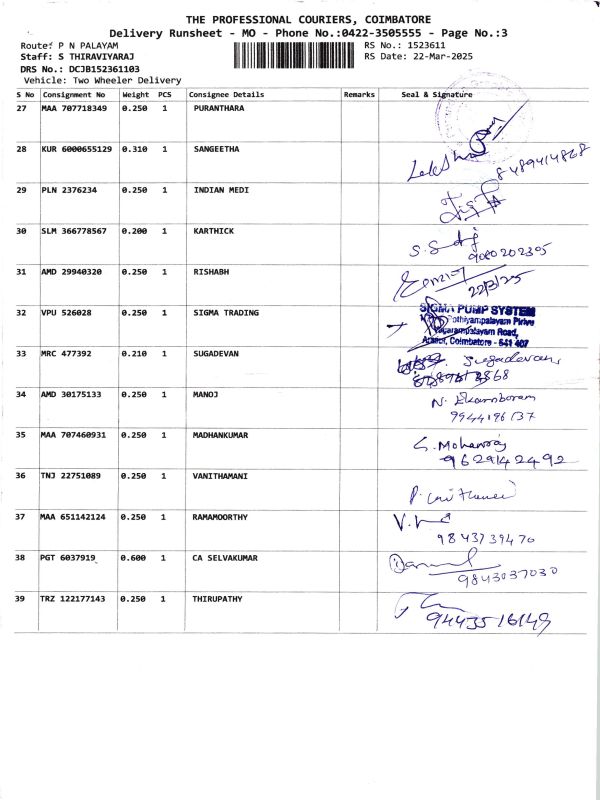 THE PROFESSIONAL COURIERS, COIMBATORE
Delivery Runsheet - MO - Phone No.:0422-3505555 - Page No.:3
Route: P N PALAYAM RS No.: 1523611
Staff: S THIRAVIYARAJ RS Date: 22-Mar-2025
DRS No.: DCJB152361103
Vehicle: Two Wheeler Delivery
S No Consignment No Weight PCS Consignee Details Remarks Seal & Signature
27 MAA 707718349 0.250 1 PURANTHARA
28 KUR 6000655129 0.310 1 SANGEETHA 8489414868
29 PLN 2376234 0.250 1 INDIAN MEDI
30 SLM 366778567 0.200 1 KARTHICK
9080202305
31 AMD 29940320 0.250 1 RISHABH
22/3/25
32 VPU 526028 0.250 1 SIGMA TRADING SIGMA PUMP SYSTEM
Pothiyampalayam Pirivu
Road,
Coimbatore - 641 407
33 MRC 477392 0.210 1 SUGADEVAN Sugadevan
34 AMD 30175133 0.250 1 MANOJ N. Ekambaram
9944196137
35 MAA 707460931 0.250 1 MADHANKUMAR S. Mohanraj
9629142492
36 TNJ 22751089 0.250 1 VANITHAMANI
37 MAA 651142124 0.250 1 RAMAMOORTHY
9843739470
38 PGT 6037919 0.600 1 CA SELVAKUMAR
9843037030
39 TRZ 122177143 0.250 1 THIRUPATHY
9443516149